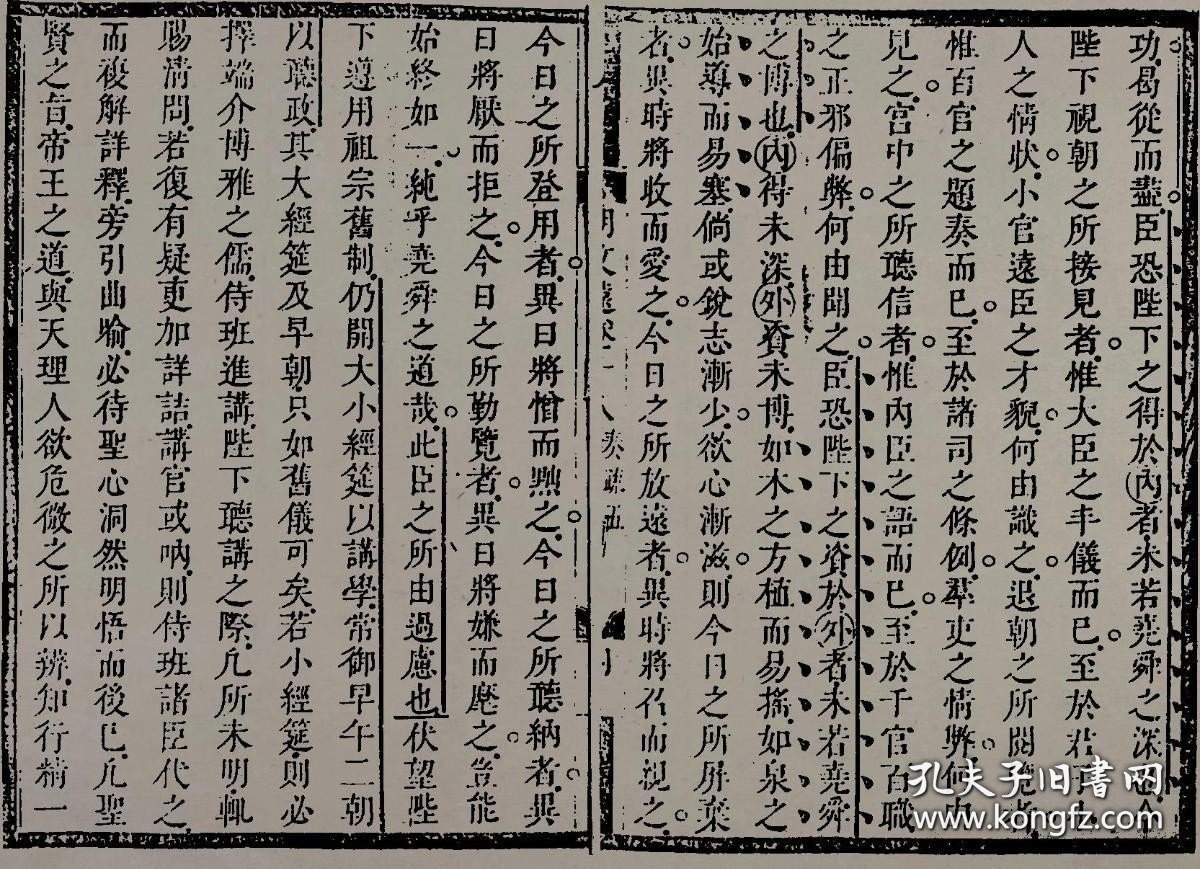 功曷從而盡臣恐陛下之得於內者未若堯舜之深也今
陛下視朝之所接見者惟大臣之丰儀而已至於君子小
人之情狀小官遠臣之才貌何由識之退朝之所閱覽者
惟百官之題奏而已至於諸司之條例羣吏之情弊何由
見之宮中之所聽信者惟內臣之語而已至於千官百職
之正邪偏弊何由聞之臣恐陛下之資於外者未若堯舜
之博也內得未深外資未博如木之方植而易搖如泉之
始導而易塞倘或銳志漸少欲心漸滋則今日之所屏棄
者異時將收而愛之今日之所放遠者異時將召而視之
明文 奏疏五
今日之所登用者異日將憎而黜之今日之所聽納者異
日將厭而拒之今日之所勤覽者異日將嫌而麾之豈能
始終如一純乎堯舜之道哉此臣之所由過慮也伏望陛
下遵用祖宗舊制仍開大小經筵以講學常御早午二朝
以聽政其大經筵及早朝只如舊儀可矣若小經筵則必
擇端介博雅之儒侍班進講陛下聽講之際凡所未明輒
賜清問若復有疑更加詳詰講官或吶則侍班諸臣代之
而複解詳釋旁引曲喻必待聖心洞然明悟而後已凡聖
賢之旨帝王之道與天理人欲危微之所以辨知行精一
孔夫子旧書网
www.kongfz.com